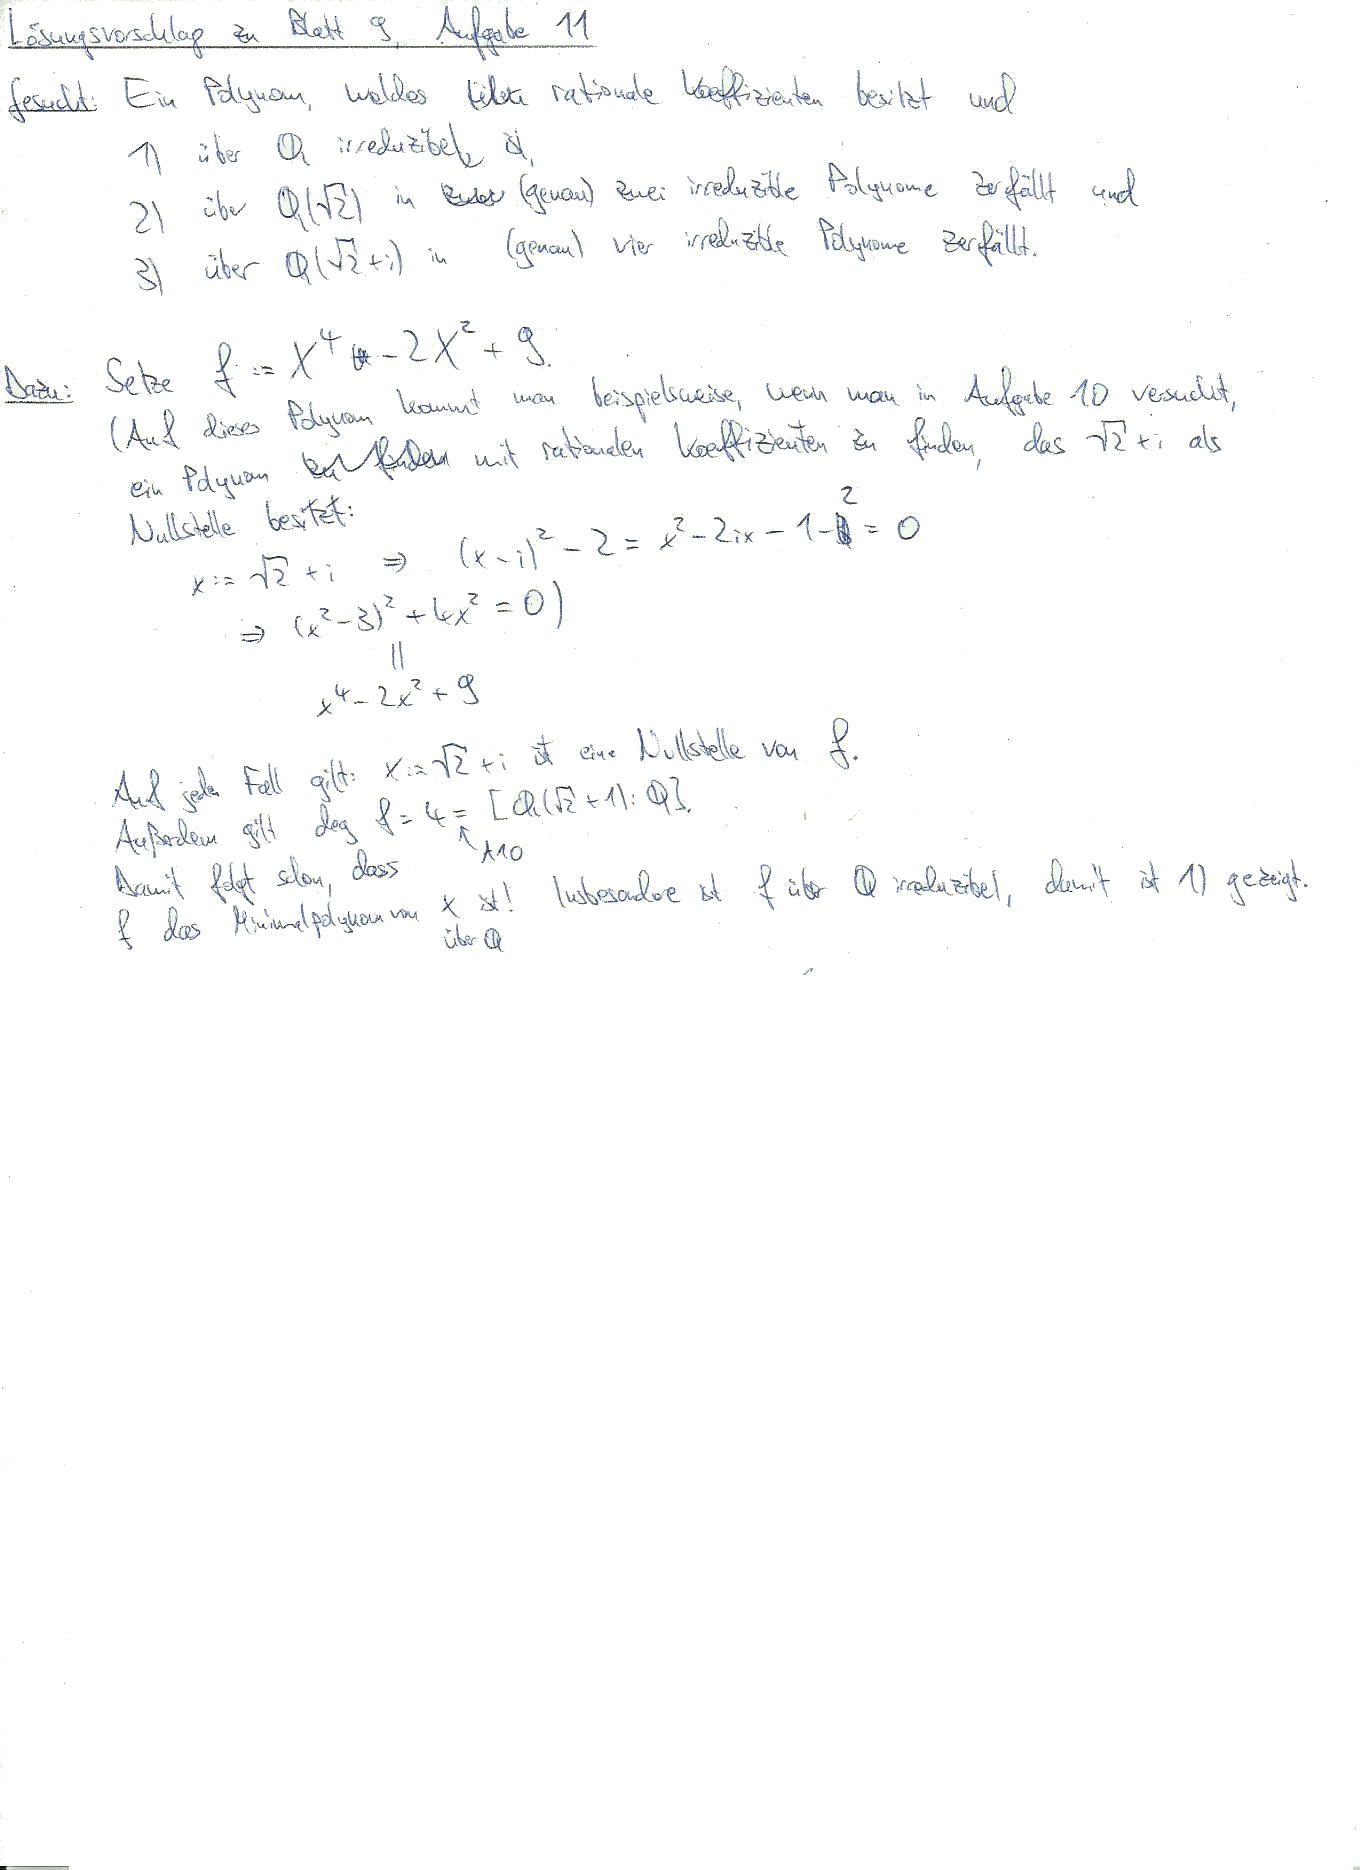 Lösungsvorschlag zu Blatt 9, Aufgabe 11
Gesucht: Ein Polynom, welches rationale Koeffizienten besitzt und
1) über ℚ irreduzibel ist,
2) über ℚ(√2) in (genau) zwei irreduzible Polynome zerfällt und
3) über ℚ(√2+i) in (genau) vier irreduzible Polynome zerfällt.
Dazu: Setze f := X⁴ - 2X² + 9.
(Auf dieses Polynom kommt man beispielsweise, wenn man in Aufgabe 10 versucht,
ein Polynom mit rationalen Koeffizienten zu finden, das √2 + i als
Nullstelle besitzt:
x := √2 + i ⇒ (x - i)² - 2 = x² - 2ix - 1 - 2 = 0
⇒ (x² - 3)² + 4x² = 0)
||
x⁴ - 2x² + 9
Auf jeden Fall gilt: x := √2 + i ist eine Nullstelle von f.
Außerdem gilt deg f = 4 = [ℚ(√2 + 1) : ℚ].
↑ A10
Damit folgt schon, dass
f das Minimalpolynom von x ist! Insbesondere ist f über ℚ irreduzibel, damit ist 1) gezeigt.
über ℚ